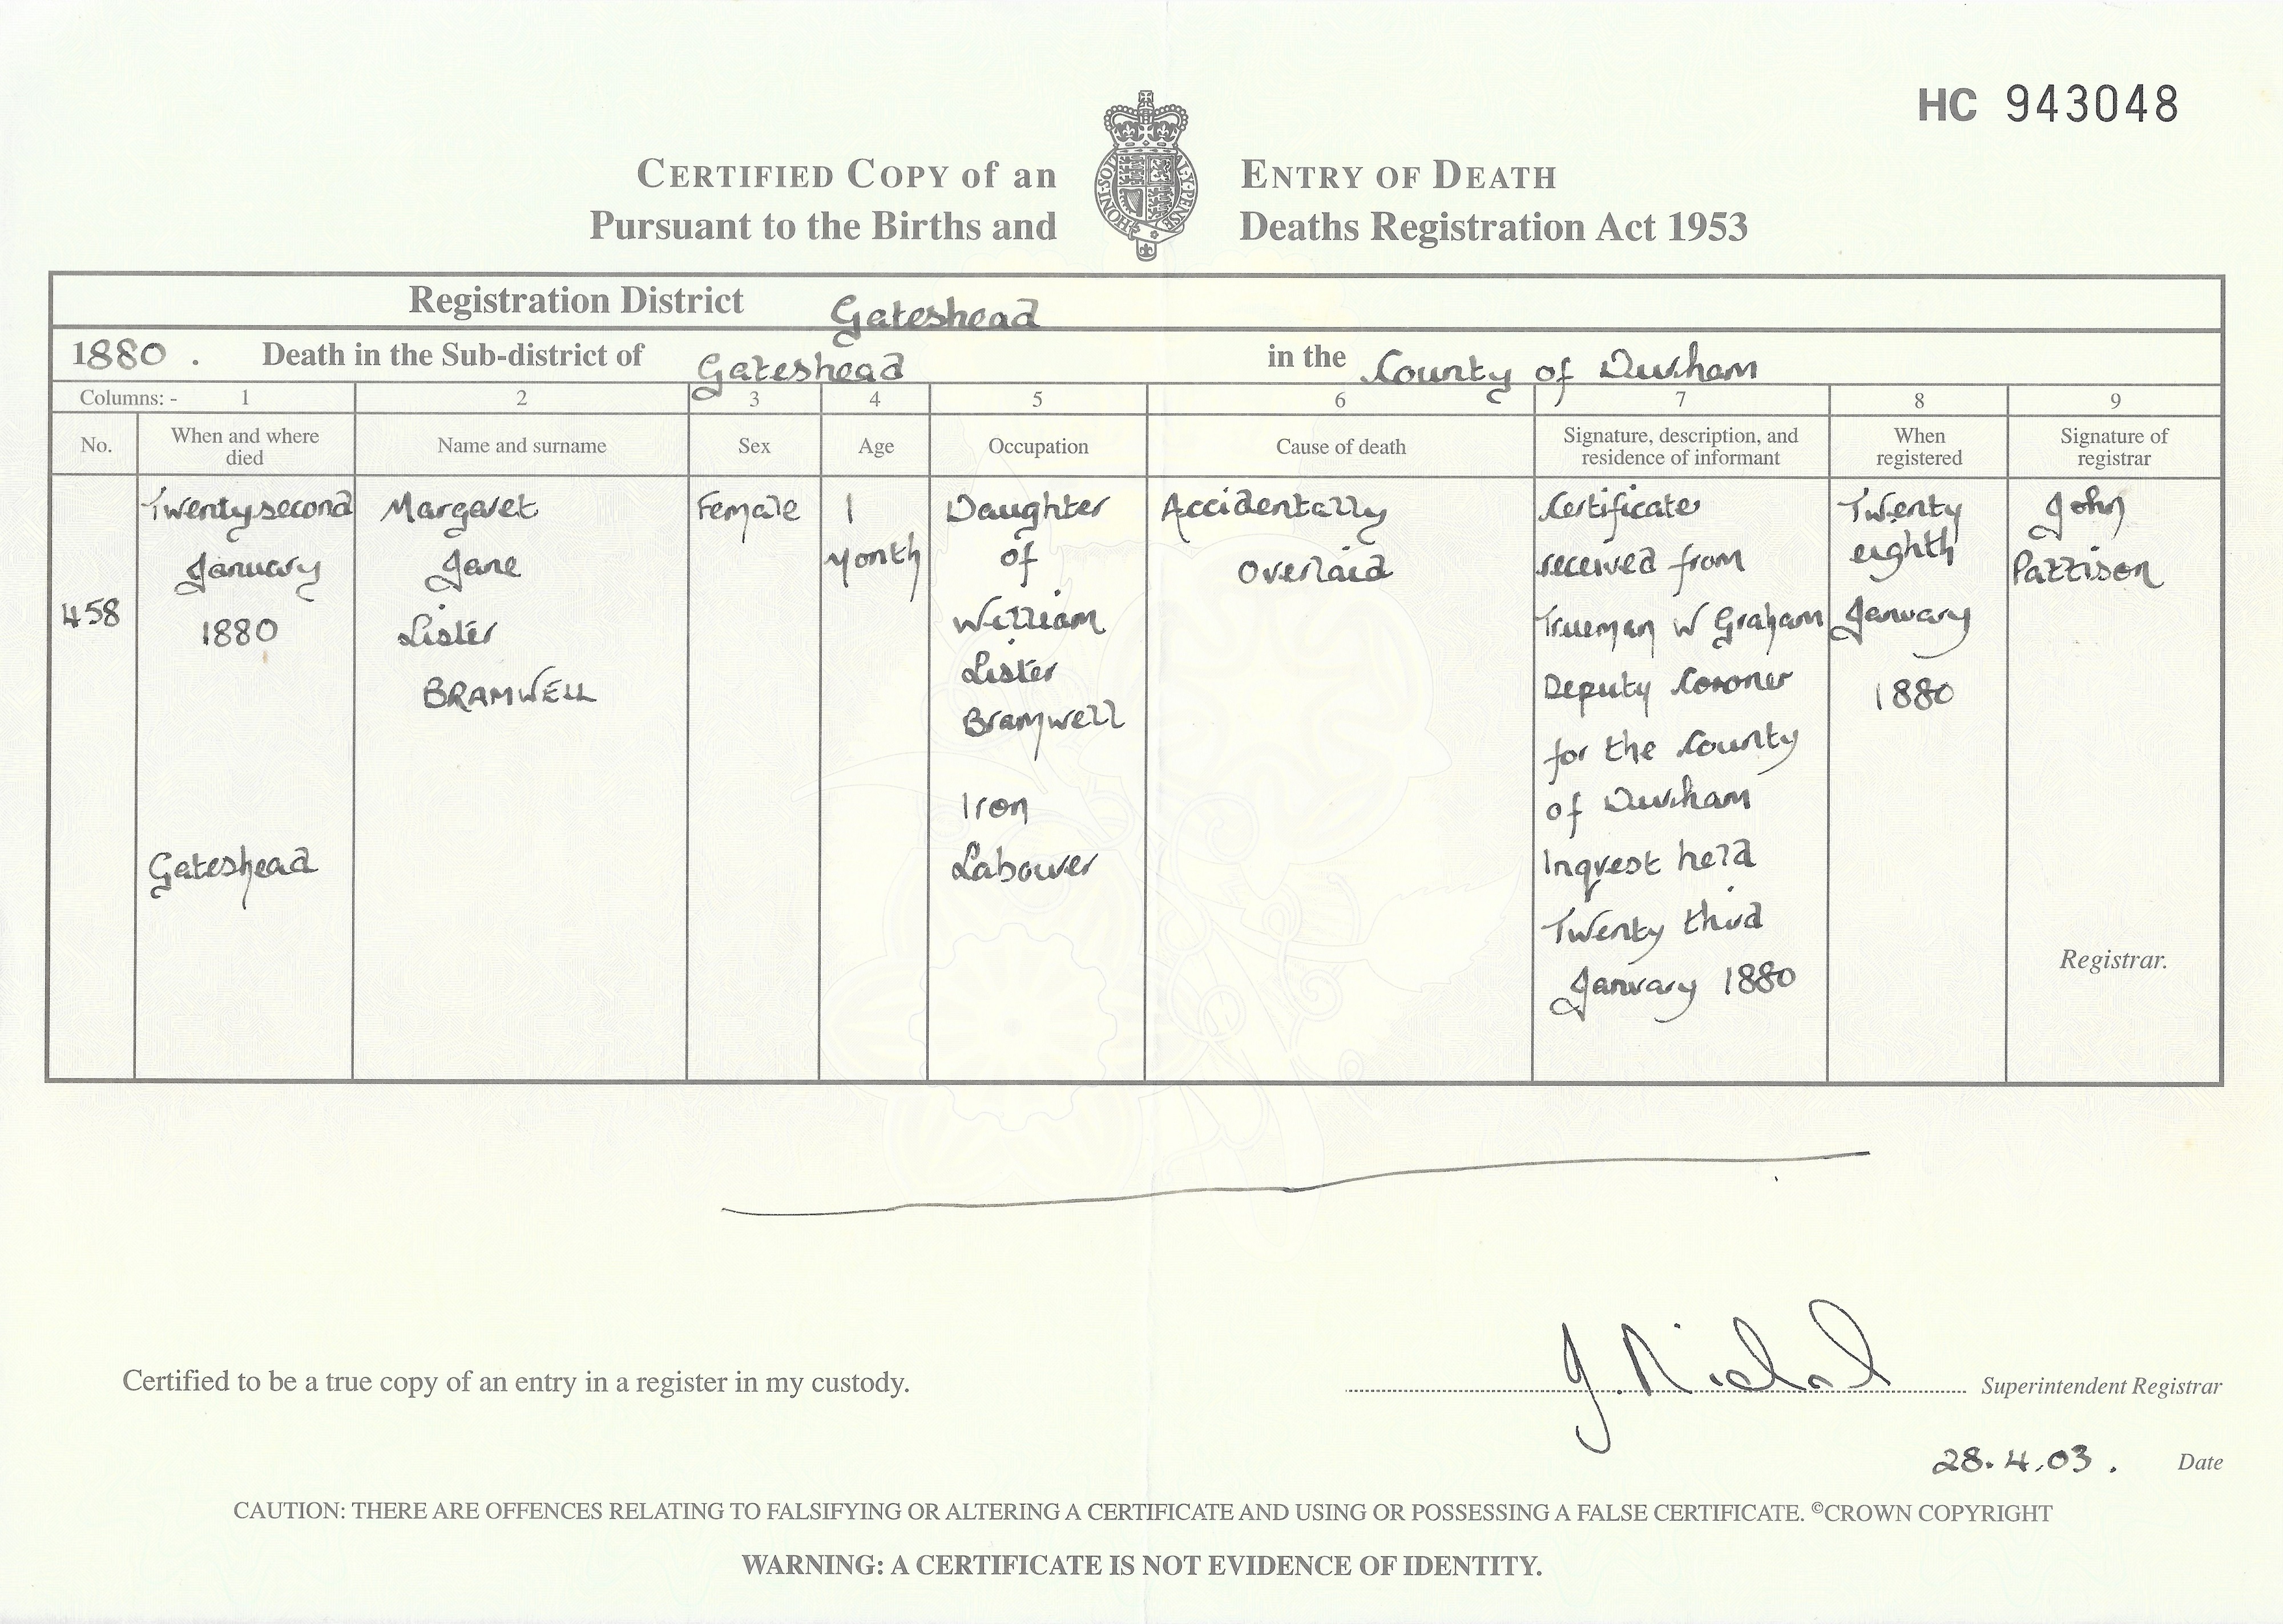 HC 943048
CERTIFIED COPY of an ENTRY OF DEATH
Pursuant to the Births and Deaths Registration Act 1953
HONI·SOIT ·MAL·Y·PENSE
Registration District Gateshead
1880 . Death in the Sub-district of Gateshead in the County of Durham
Columns: - 1 2 3 4 5 6 7 8 9
No.
When and where
died
Name and surname
Sex
Age
Occupation
Cause of death
Signature, description, and
residence of informant
When
registered
Signature of
registrar
458
Twenty second
January
1880
Gateshead
Margaret
Jane
Lister
BRAMWELL
Female
1
Month
Daughter
of
William
Lister
Bramwell
Iron
Labourer
Accidentally
overlaid
Certificate
received from
Trueman W Graham
Deputy Coroner
for the County
of Durham
Inquest held
Twenty third
January 1880
Twenty
eighth
January
1880
John
Pattison
Registrar.
Certified to be a true copy of an entry in a register in my custody.
J. Nichol Superintendent Registrar
28.4.03. Date
CAUTION: THERE ARE OFFENCES RELATING TO FALSIFYING OR ALTERING A CERTIFICATE AND USING OR POSSESSING A FALSE CERTIFICATE. ©CROWN COPYRIGHT
WARNING: A CERTIFICATE IS NOT EVIDENCE OF IDENTITY.